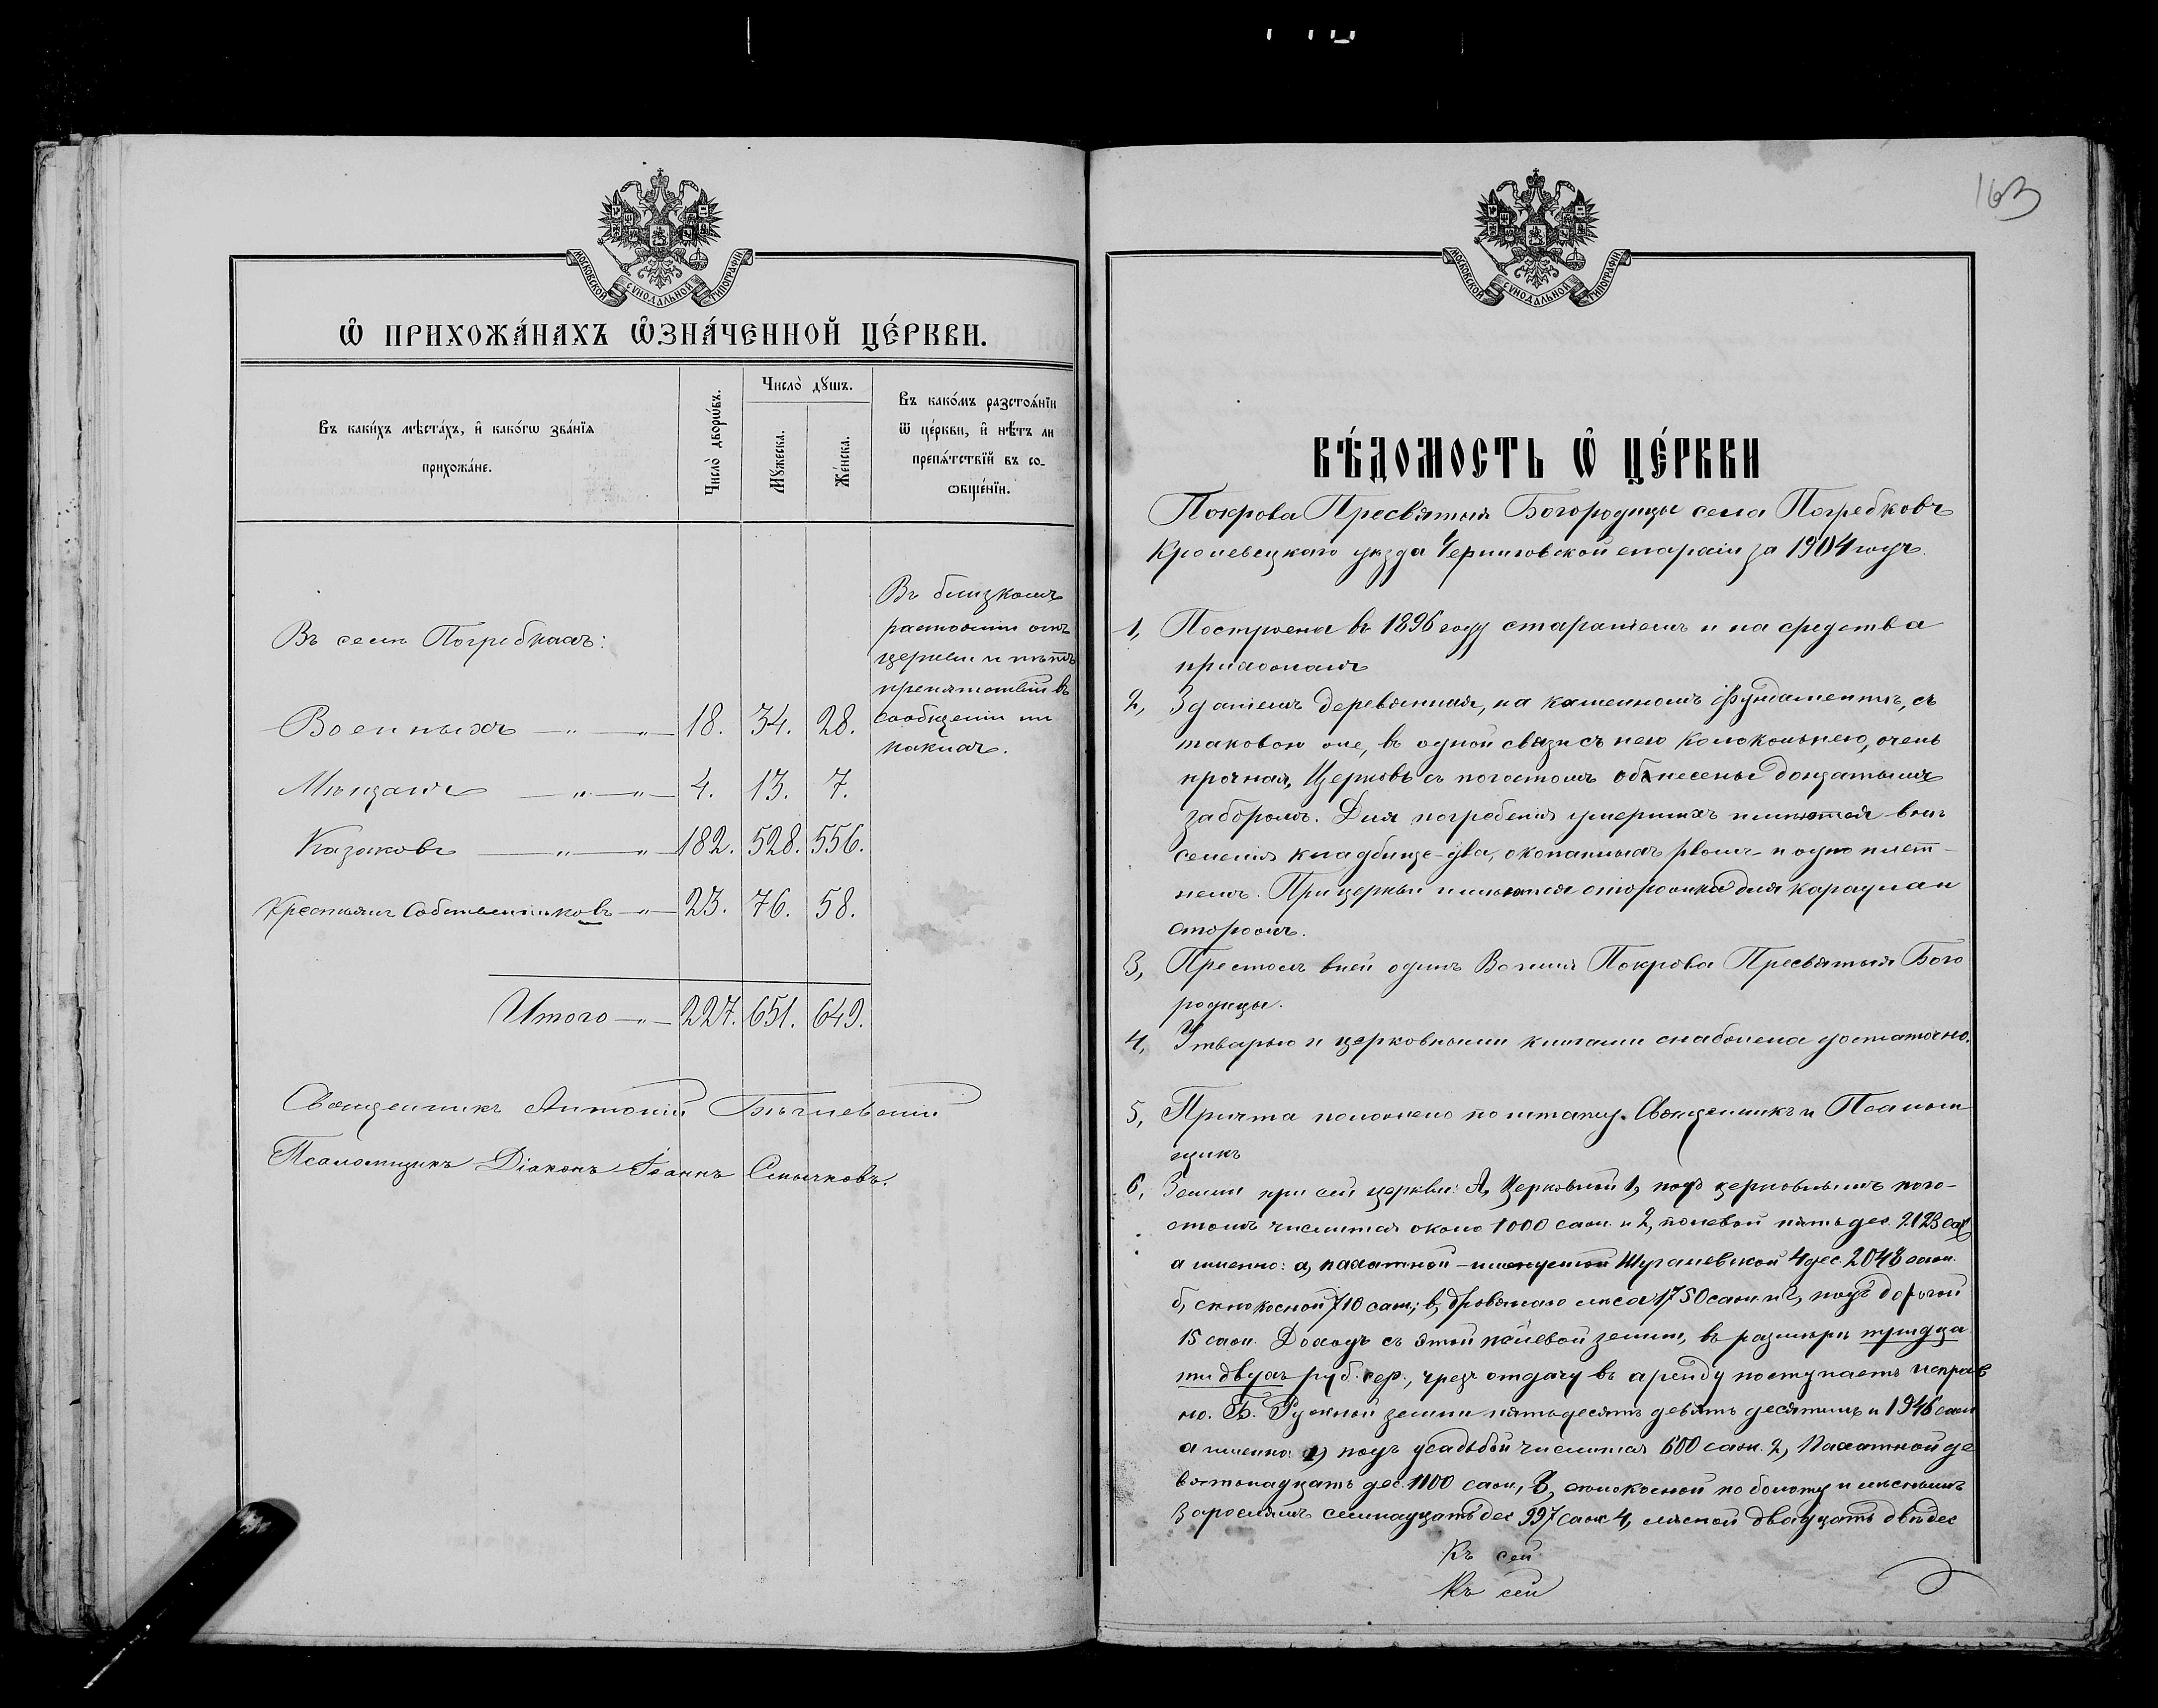 163
МОСКОВСКОЙ СУНОДАЛЬНОЙ ТИПОГРАФІИ
Ѡ ПРИХОЖА́НАХЪ Ѡ҆ЗНА́ЧЕННОЙ ЦЕ́РКВИ.
Въ каки́хъ мѣста́хъ, и҆ како́гѡ зва́нїѧ
прихожа́не.
Число̀ дворѡ́въ.
Число̀ дꙋшъ.
Мꙋ́жеска.
Же́нска.
Въ како́мъ разстоѧ́нїи
ѿ це́ркви, и҆ нѣ́тъ ли
препѧ́тствїй въ со-
ѻбще́нїи.
Въ близкомъ
растояніи отъ
церкви и нѣтъ
препятствій въ
сообщеніи ни
какихъ.
Въ селѣ Погребкахъ:
Военныхъ — „ — „ — 18. 34. 28.
Мѣщанъ — „ — „ — 4. 13. 7.
Казаковъ — „ — „ — 182. 528. 556.
Крестьянъ Собственниковъ — „ — 23. 76. 58.
Итого — „ — 227. 651. 649.
Священникъ Антоній
Псаломщикъ Діаконъ Іоаннъ Смычковъ.
МОСКОВСКОЙ СУНОДАЛЬНОЙ ТИПОГРАФІИ
ВѢ́ДОМОСТЬ Ѡ҆ ЦЕ́РКВИ
Покрова Пресвятыя Богородицы села Погребковъ
Кролевецкаго уѣзда Черниговской епархіи за 1904 годъ.
1, Построена въ 1896 году стараніемъ и на средства
прихожанъ
2, Зданіемъ деревянная, на каменномъ фундаментѣ, съ
таковою же, въ одной связи съ нею колокольнею, очень
прочная, Церковь съ погостомъ обнесены дощатымъ
заборомъ. Для погребенія умершихъ имѣются внѣ
селенія кладбище два, окопанныхъ рвомъ и одно плет-
немъ. При церкви имѣются сторожка для караула и
сторожъ.
3, Престолъ въ ней одинъ Во имя Покрова Пресвятыя Бого
родицы.
4, Утварью и церковными книгами снабжена достаточно.
5, Причта положено по штату. Священникъ и Псалом
щикъ
6, Земли при сей церкви: А, Церковной 1, подъ церковнымъ пого-
стомъ числится около 1000 саж. и 2, полевой пять дес. 2123 саж
а именно: а, пахатной — именуемой Шугалевской 4 дес. 2048 саж.
б, сѣнокосной 710 саж; в, дровянаго лѣса 1750 саж. и г, подъ дорогой
15 саж. Доходъ съ этой полевой земли, въ размѣрѣ тридца
ти двухъ руб. сер., чрезъ отдачу въ аренду поступаетъ исправ
но. Б. Ружной земли пятьдесятъ девять десятинъ и 1946 саж
а именно: 1) подъ усадьбой числится 600 саж. 2, Пахатной де
вятьнадцать дес. 1100 саж, 3, сѣнокосной по болоту и лѣснымъ
зарослямъ семнадцать дес 997 саж 4, лѣсной двадцать двѣ дес
Къ сей
Къ сей